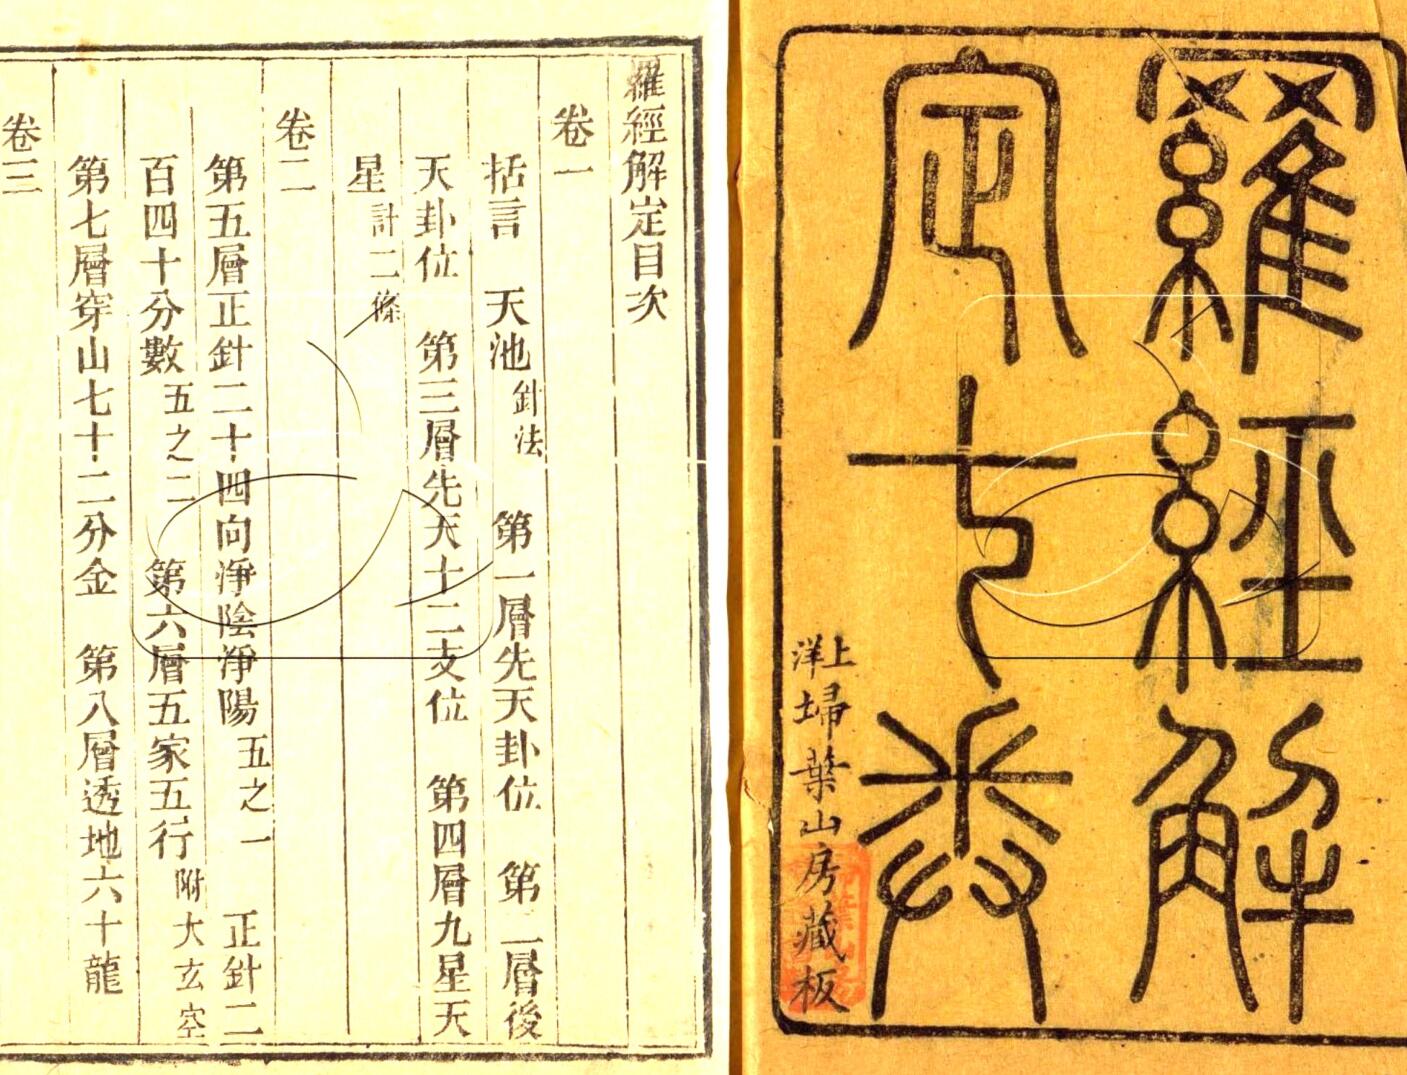 羅經解
定七卷
上洋埽葉山房藏板
羅經解定目次
卷一
括言　天池針法　第一層先天卦位　第二層後
天卦位　第三層先天十二支位　第四層九星天
星計二條
卷二
第五層正針二十四向淨陰淨陽五之一　正針二
百四十分數五之二　第六層五家五行附大玄空
第七層穿山七十二分金　第八層透地六十龍
卷三